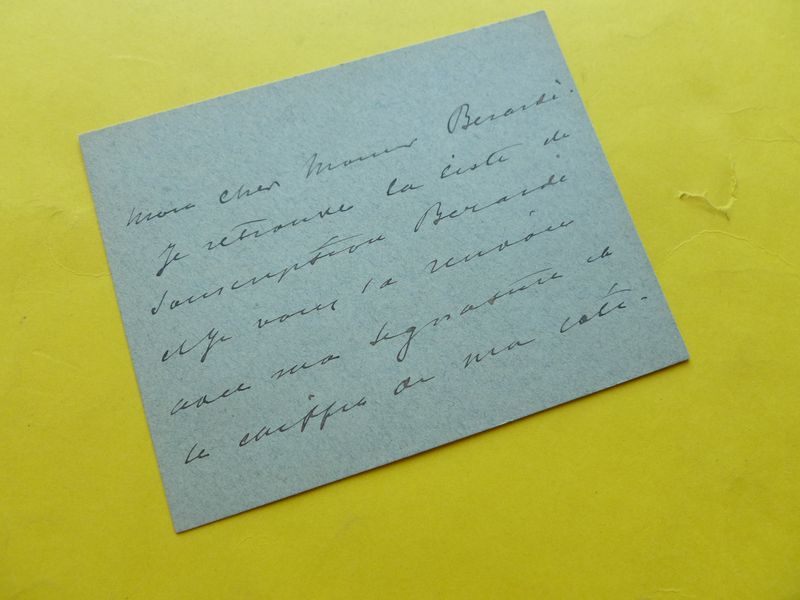 mon cher Monsieur Berardi.
Je retrouve la liste de
souscription Berardi
et Je vous la renvoie
avec ma signature et
le chiffre de ma coté.